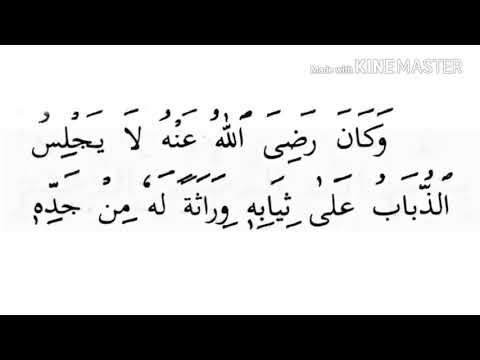 Made with KINEMASTER
وَكَانَ رَضِىَ ٱللّٰهُ عَنْهُ لَا يَجْلِسُ
ٱلذُّبَابُ عَلَىٰ ثِيَابِهِۦ وِرَاثَةً لَهُۥ مِنْ جَدِّهِۦ